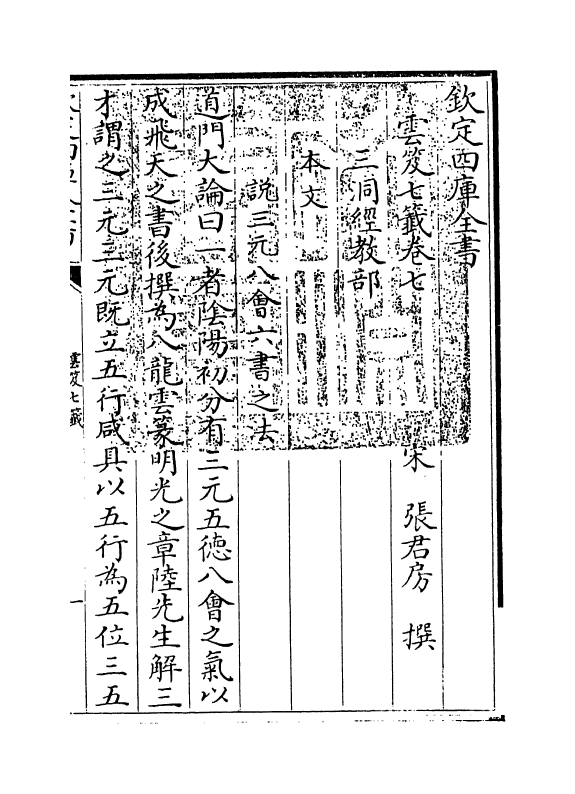 欽定四庫全書
雲笈七籤卷七
宋 張君房 撰
三洞經教部
本文
說三元八會六書之法
道門大論曰一者陰陽初分有三元五德八會之氣以
成飛天之書後撰為八龍雲篆明光之章陸先生解三
才謂之三元三元既立五行咸具以五行為五位三五
雲笈七籤
一